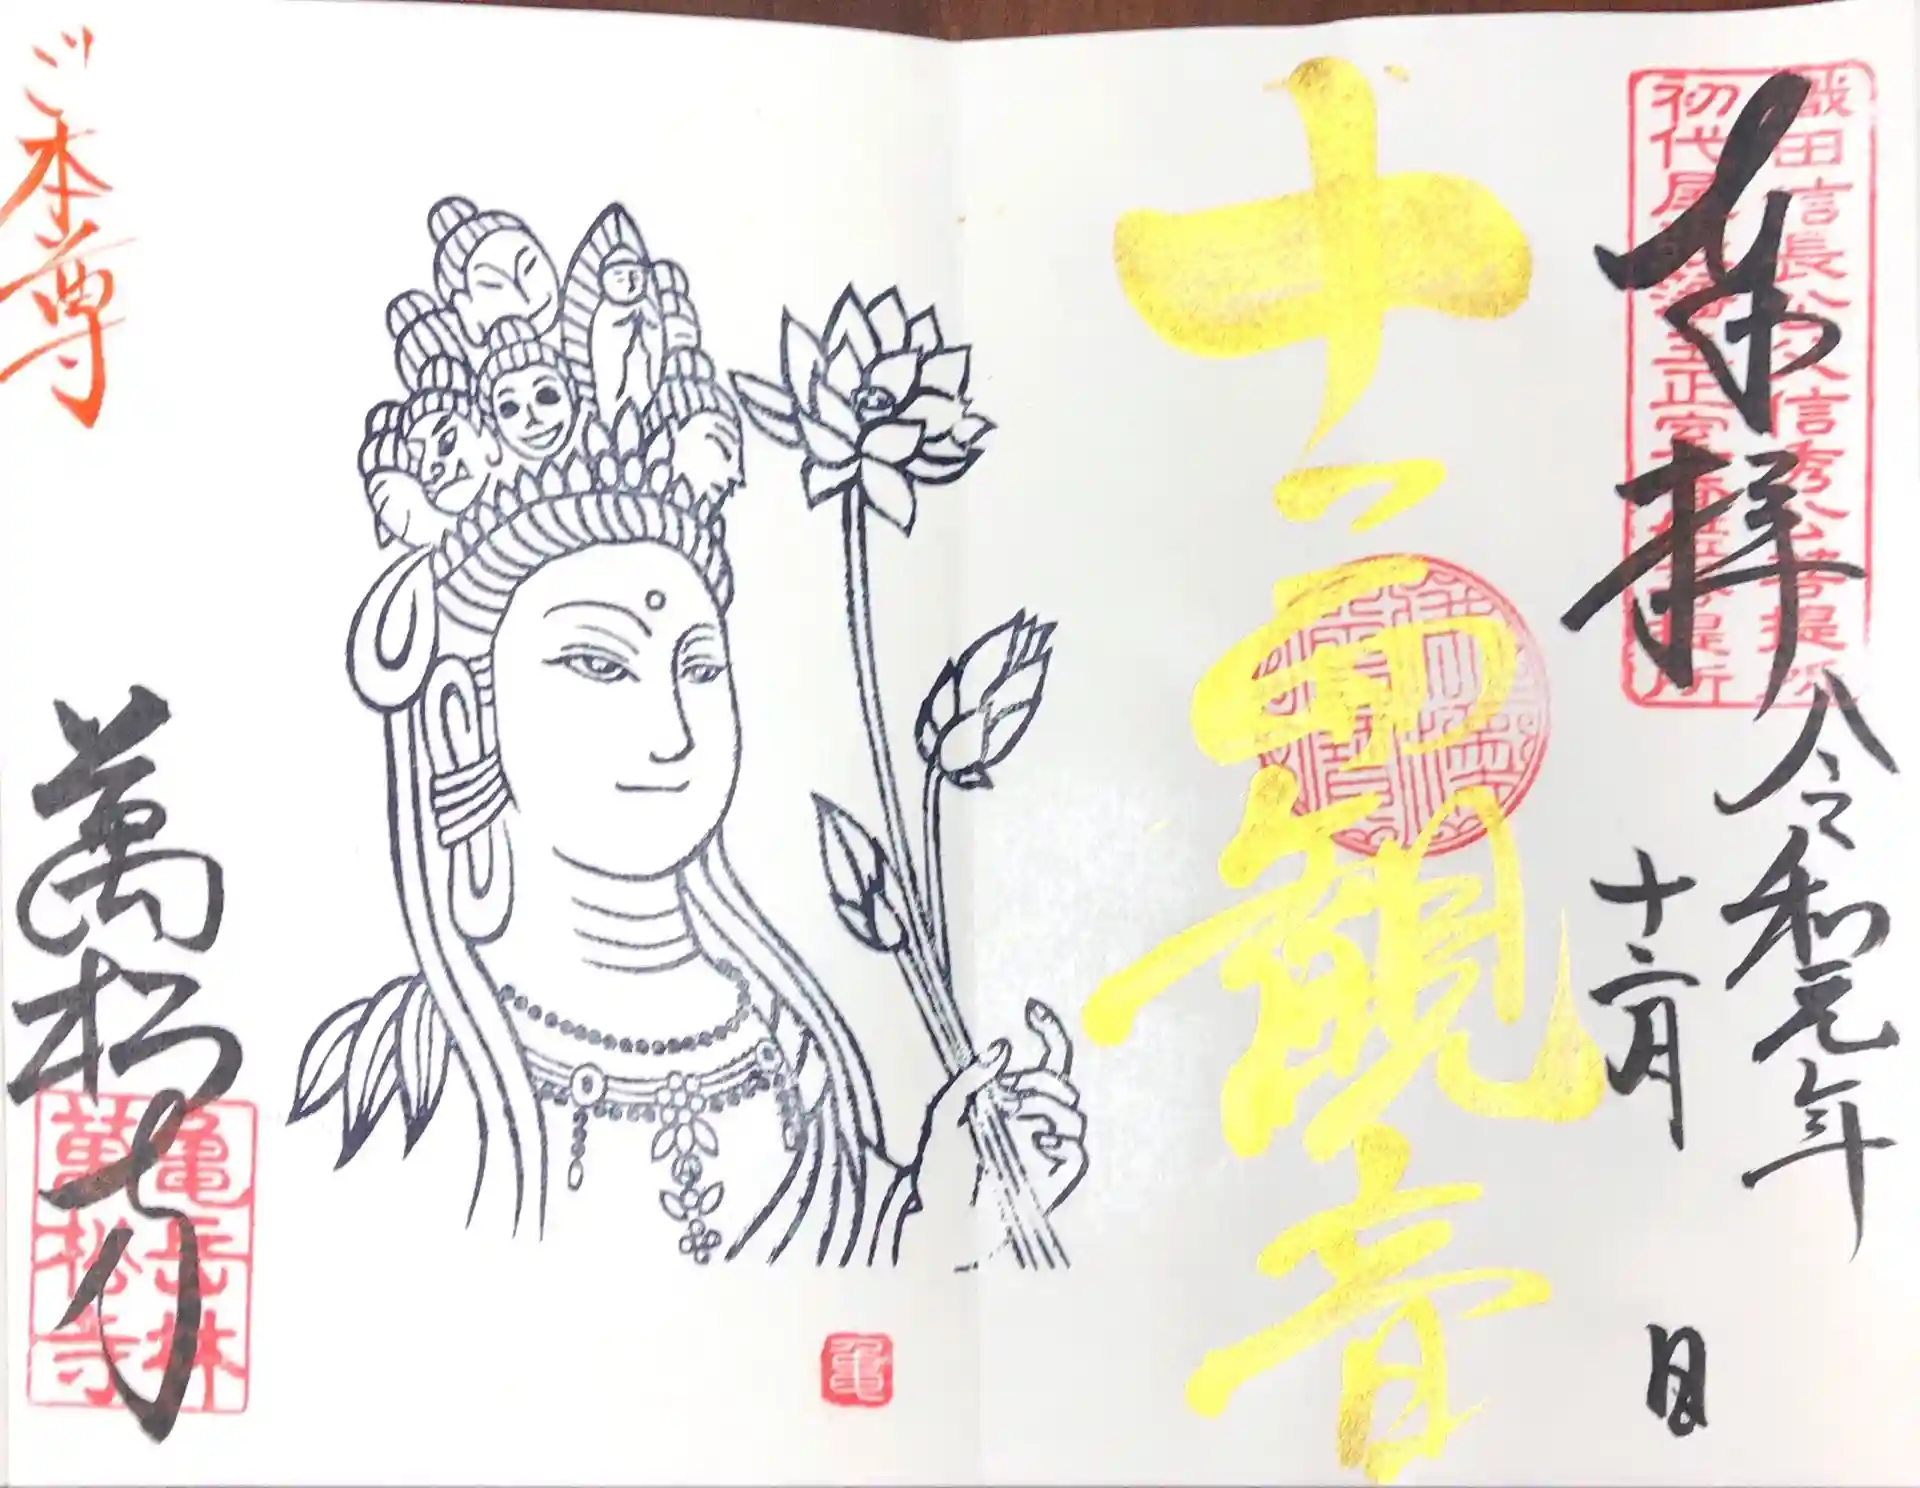 織田信長公父信秀公菩提所
初代尾張藩主正室
奉拝
令和元年
十二月
日
十一面観音
ご本尊
萬松寺
亀岳林
萬松寺
亀